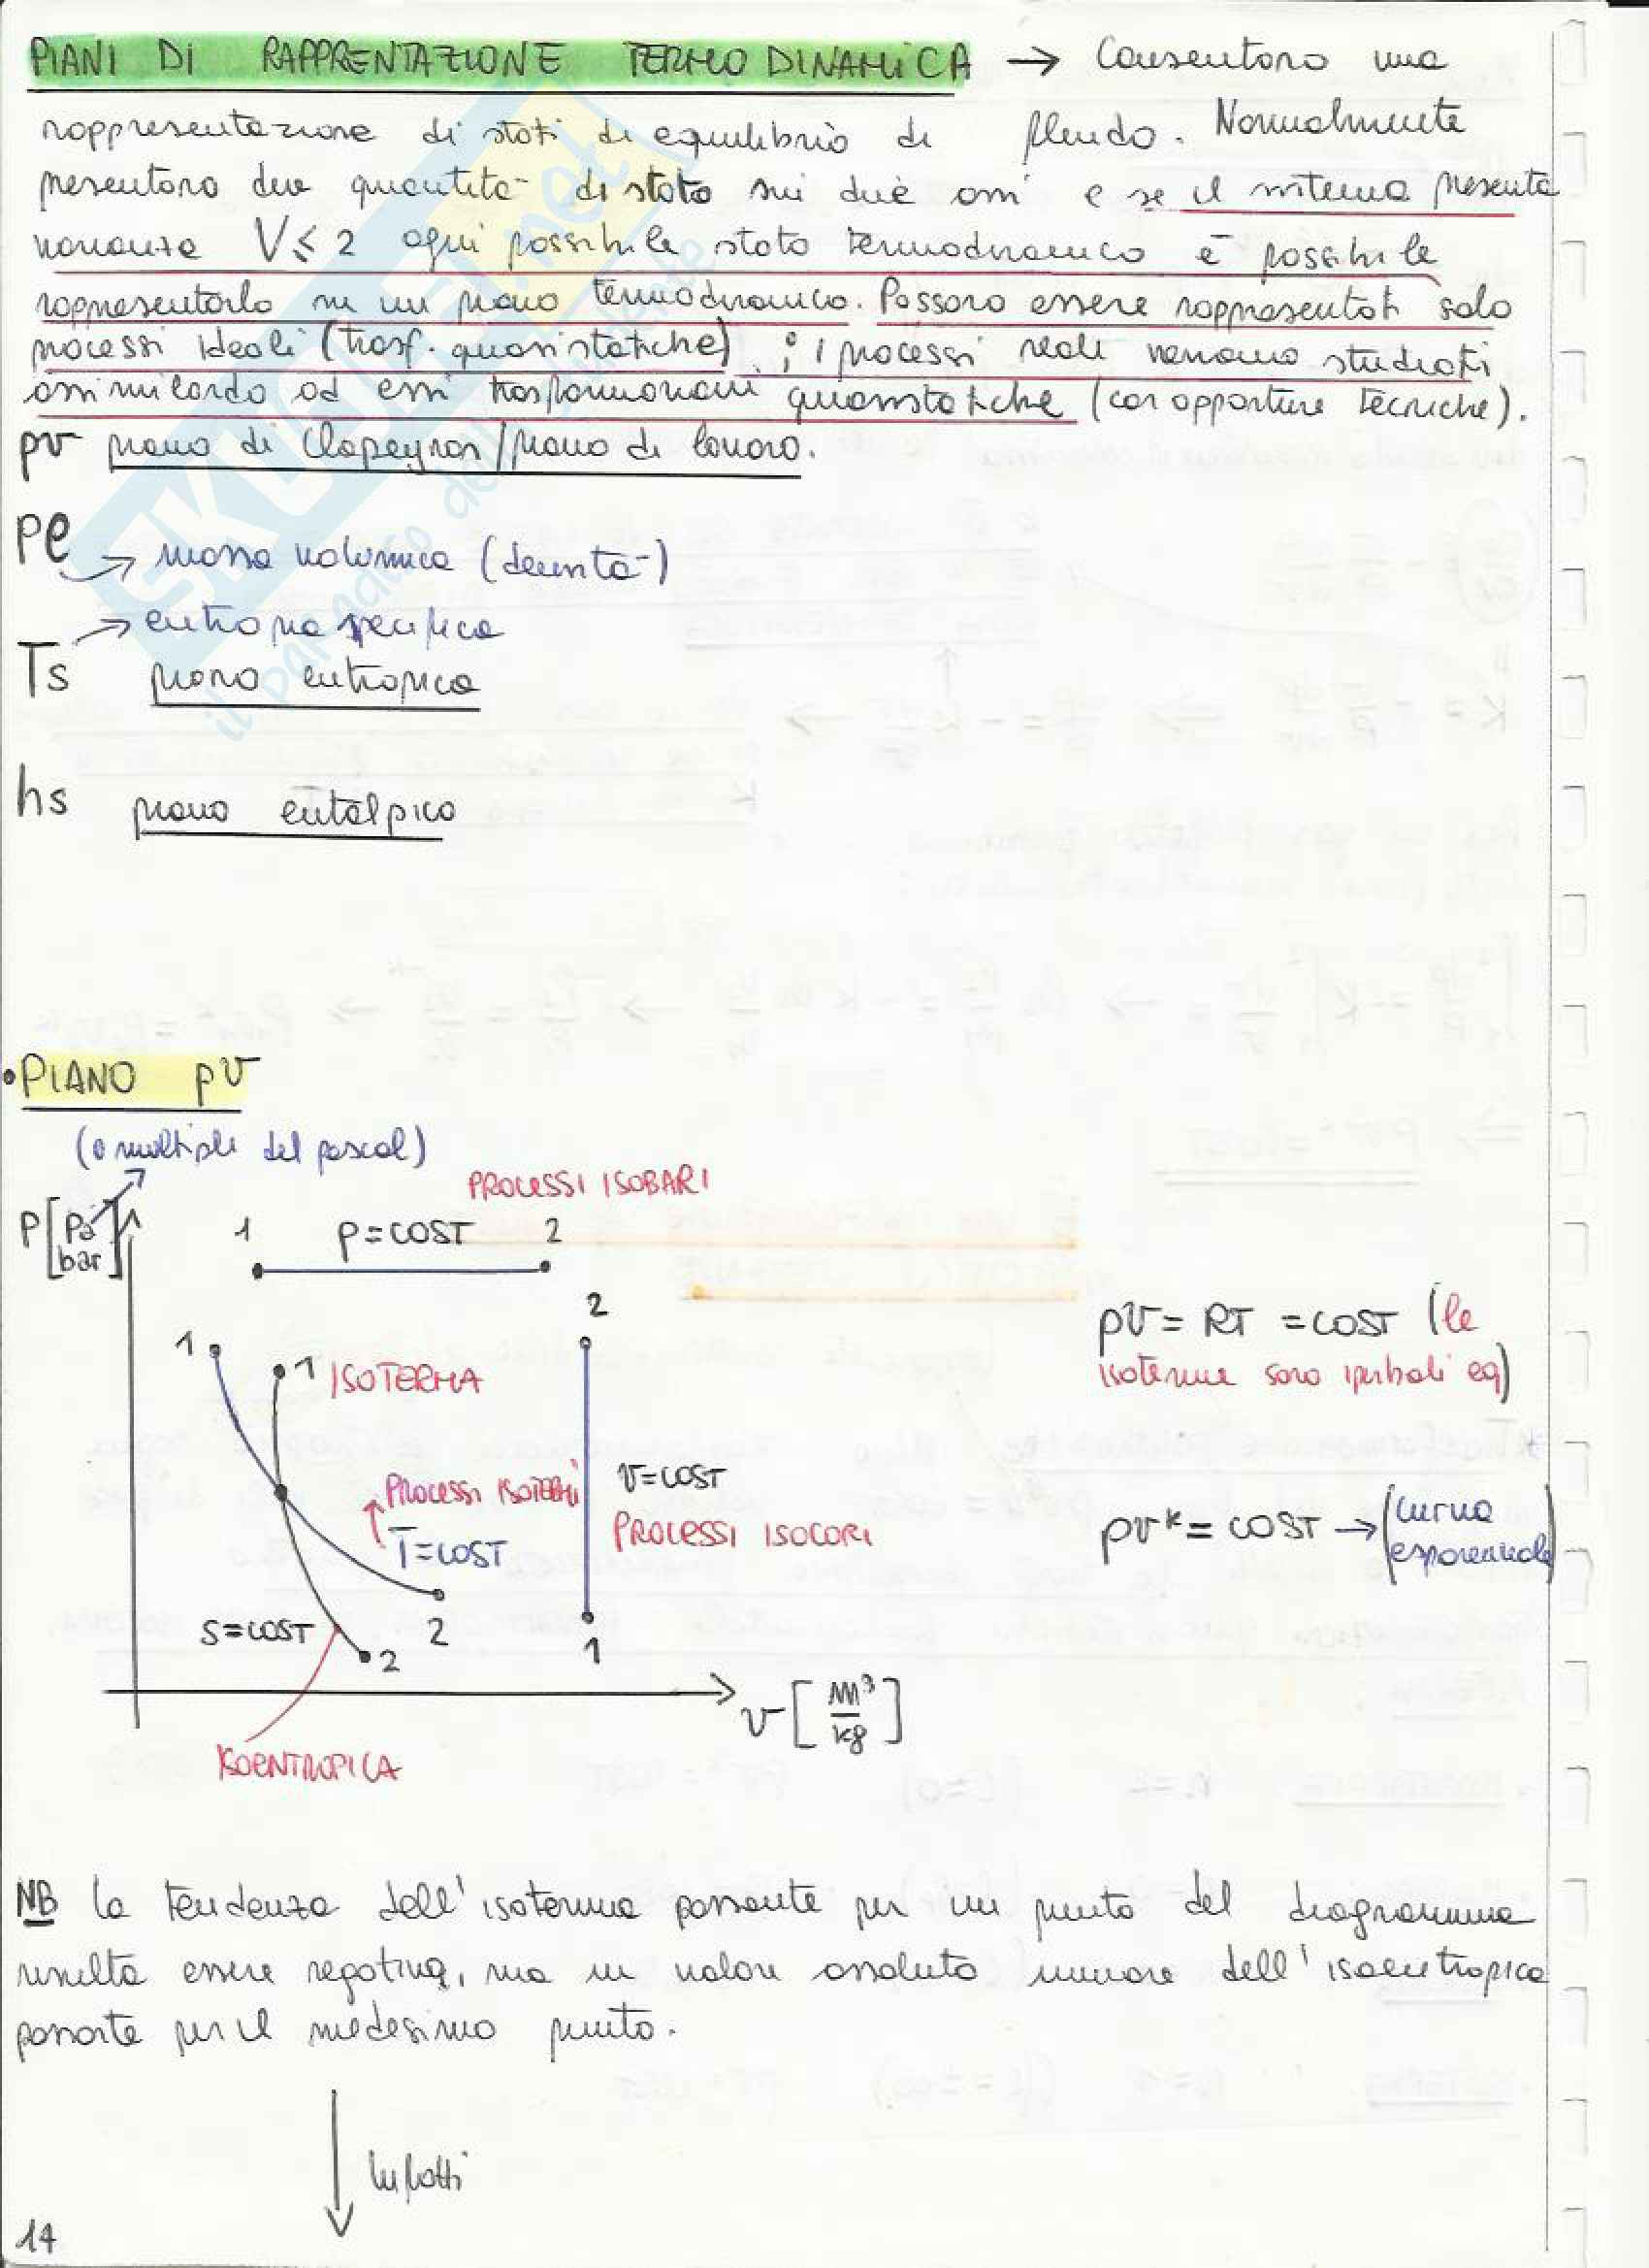 PIANI DI RAPPRENTAZIONE TERMODINAMICA → Consentono una
rappresentazione di stati di equilibrio di fluido. Normalmente
presentano due quantità di stato sui due assi e se il sistema presenta
varianza V ≤ 2 ogni possibile stato termodinamico è possibile
rappresentarlo su un piano termodinamico. Possono essere rappresentati solo
processi ideali (trasf. quasistatiche) ; i processi reali vengono studiati
assimilando ad essi trasformazioni quasistatiche (con opportune tecniche).
pv piano di Clapeyron/piano di lavoro.
pe
→ massa volumica (densità)
→ entropia specifica
Ts piano entropico
hs piano entalpico
• PIANO pv
(o multipli del pascal)
P [Pa bar]
PROCESSI ISOBARI
1 p=COST 2
2
1
1 ISOTERMA
pv = RT = COST (le
isoterme sono iperboli eq)
PROCESSI ISOTERMI
T=COST
v=COST
PROCESSI ISOCORI
pv^k = COST → (curva
esponenziale)
S=COST
2
2
1
v [m³/kg]
ISOENTROPICA
NB la tendenza dell'isoterma passante per un punto del diagramma
risulta essere negativa, ma in valore assoluto minore dell'isoentropica
passante per il medesimo punto.
↓ Infatti
14
SKUOLA.net
il paradiso dello studente